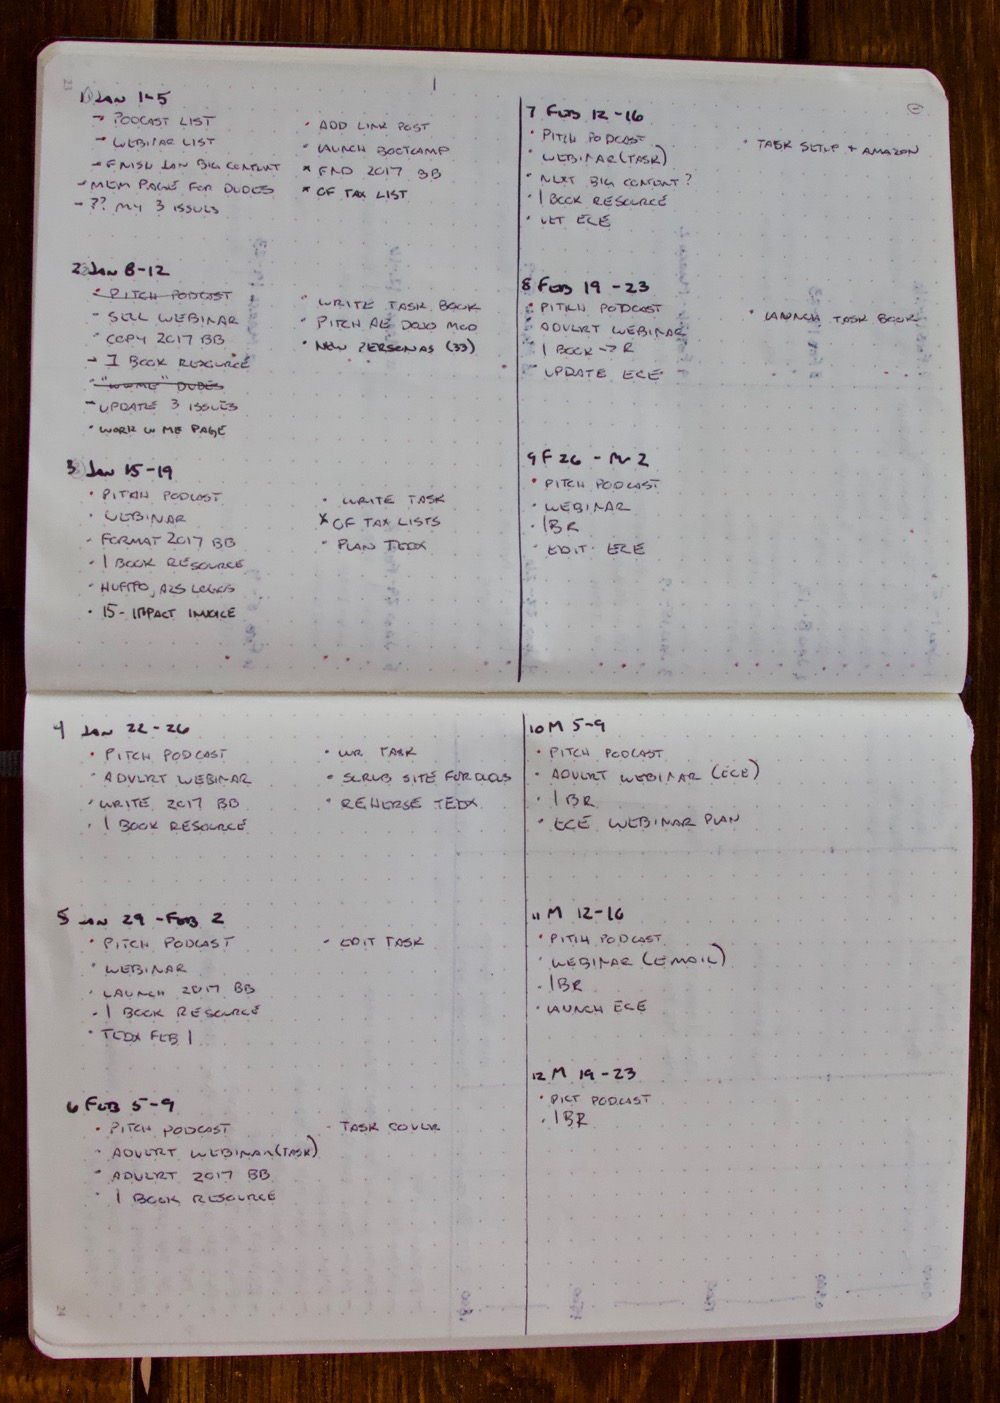 1 Jan 1-5
→ PODCAST LIST
→ WEBINAR LIST
→ FINISH JAN BIG CONTENT
→ MEM PAGE FOR DUDES
→ ?? MY 3 ISSUES
• ADD LINK POST
• LAUNCH BOOTCAMP
× FND 2017 BB
× CF TAX LIST
2 Jan 8-12
• PITCH PODCAST
- SELL WEBINAR
• COPY 2017 BB
→ 1 BOOK RESOURCE
DUDES
→ UPDATE 3 ISSUES
• WORK W ME PAGE
• WRITE TASK BOOK
• PITCH AE DOJO MOD
• NEW PERSONAS (33)
3 Jan 15-19
• PITCH PODCAST
• WEBINAR
- FORMAT 2017 BB
• 1 BOOK RESOURCE
• HUFFPO, A2S LOGOS
• 15- IMPACT INVOICE
• WRITE TASK
× CF TAX LISTS
• PLAN TEDX
4 Jan 22-26
• PITCH PODCAST
• ADVERT WEBINAR
• WRITE 2017 BB
• 1 BOOK RESOURCE
• WR TASK
• SCRUB SITE FOR DUDES
• REHERSE TEDX
5 Jan 29 - FEB 2
• PITCH PODCAST
• WEBINAR
• LAUNCH 2017 BB
• 1 BOOK RESOURCE
• TEDX FEB 1
• EDIT TASK
6 FEB 5-9
• PITCH PODCAST
• ADVERT WEBINAR (TASK)
• ADVERT 2017 BB
• 1 BOOK RESOURCE
- TASK COVER
7 FEB 12-16
• PITCH PODCAST
• WEBINAR (TASK)
• NEXT BIG CONTENT?
• 1 BOOK RESOURCE
• VET ECE
• TASK SETUP + AMAZON
8 FEB 19-23
• PITCH PODCAST
• ADVERT WEBINAR
• 1 BOOK → R
• UPDATE ECE
• LAUNCH TASK BOOK
9 F 26 - M 2
• PITCH PODCAST
• WEBINAR
• 1BR
• EDIT ECE
10 M 5-9
• PITCH PODCAST
• ADVERT WEBINAR (ECE)
• 1BR
• ECE WEBINAR PLAN
11 M 12-16
• PITCH PODCAST
• WEBINAR (EMAIL)
• 1BR
• LAUNCH ECE
12 M 19-23
• PICT PODCAST
• 1BR
24